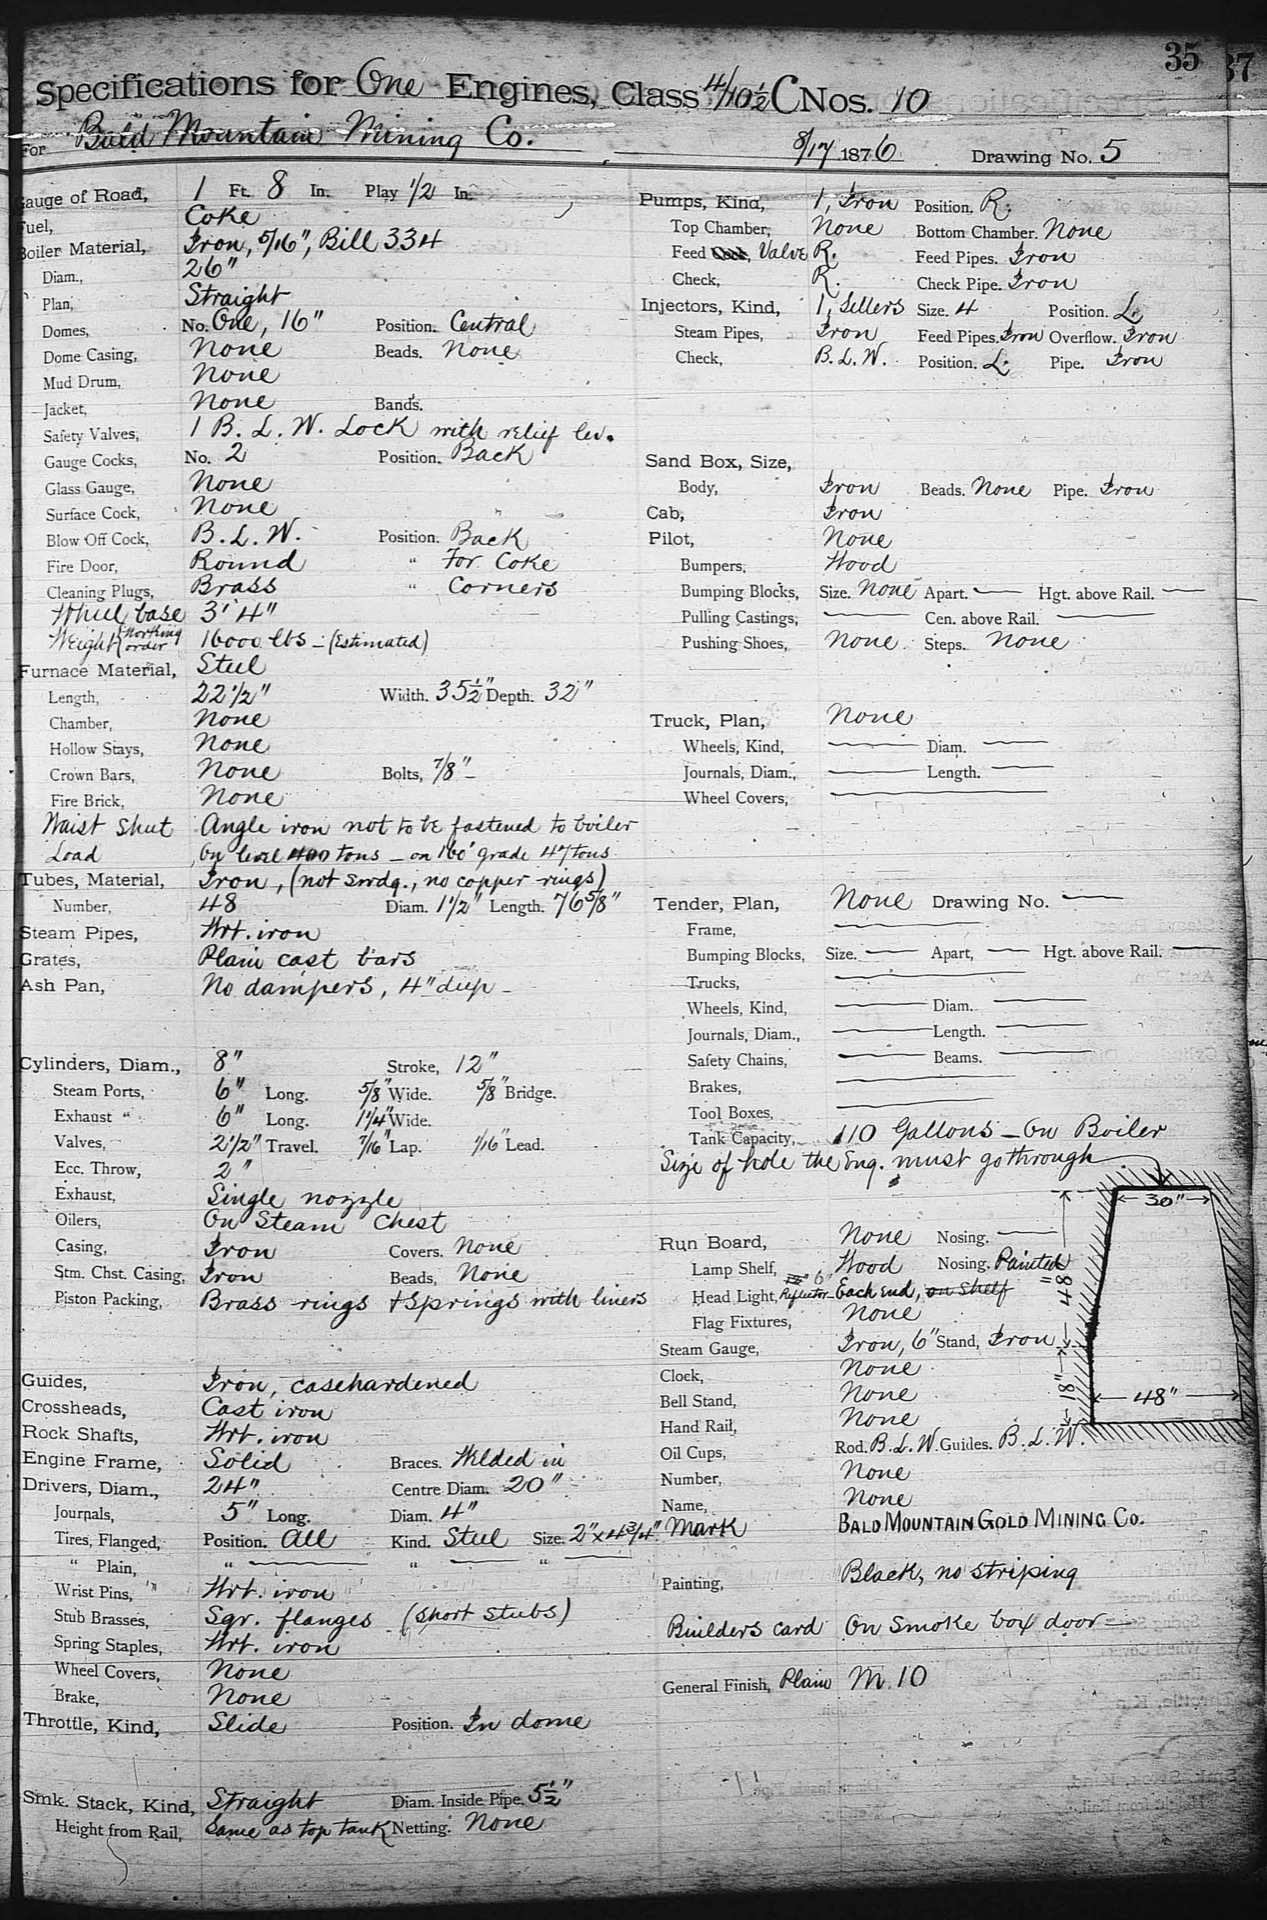 35
37
Specifications for One Engines, Class 4/10½ C Nos. 10
For Bald Mountain Mining Co. 8/17 1876 Drawing No. 5
Gauge of Road, 1 Ft. 8 In. Play 1/2 In.
Fuel, Coke
Boiler Material, Iron, 5/16", Bill 334
Diam., 26"
Plan, Straight
Domes, No. One, 16" Position. Central
Dome Casing, None Beads. None
Mud Drum, None
Jacket, None Bands.
Safety Valves, 1 B. L. W. Lock with relief lev.
Gauge Cocks, No. 2 Position. Back
Glass Gauge, None
Surface Cock, None
Blow Off Cock, B. L. W. Position. Back
Fire Door, Round " For Coke
Cleaning Plugs, Brass " Corners
Wheel base 3' 4"
Weight (working order 16000 lbs - (Estimated)
Furnace Material, Steel
Length, 22 1/2" Width. 35½" Depth. 32"
Chamber, None
Hollow Stays, None
Crown Bars, None Bolts, 7/8"
Fire Brick, None
Waist Sheet Angle iron not to be fastened to boiler
Load On level 400 tons - on 160' grade 47 tons
Tubes, Material, Iron, (not Swdg., no copper rings)
Number, 48 Diam. 1 1/2" Length. 76 5/8"
Steam Pipes, Wrt. iron
Grates, Plain cast bars
Ash Pan, No dampers, 4" deep
Cylinders, Diam., 8" Stroke, 12"
Steam Ports, 6" Long. 5/8" Wide. 5/8" Bridge.
Exhaust " 6" Long. 1 1/4" Wide.
Valves, 2 1/2" Travel. 7/16" Lap. 1/16" Lead.
Ecc. Throw, 2"
Exhaust, Single nozzle
Oilers, On Steam Chest
Casing, Iron Covers. None
Stm. Chst. Casing, Iron Beads, None
Piston Packing, Brass rings + Springs with liners
Guides, Iron, casehardened
Crossheads, Cast iron
Rock Shafts, Wrt. iron
Engine Frame, Solid Braces. Welded in
Drivers, Diam., 24" Centre Diam. 20"
Journals, 5" Long. Diam. 4"
Tires, Flanged, Position. All Kind. Steel Size. 2" x 4 3/4"
" Plain, " " "
Wrist Pins, Wrt. iron
Stub Brasses, Sqr. flanges (Short Stubs)
Spring Staples, Wrt. iron
Wheel Covers, None
Brake, None
Throttle, Kind, Slide Position. In dome
Smk. Stack, Kind, Straight Diam. Inside Pipe. 5½"
Height from Rail, Same as top tank Netting. None
Pumps, Kind, 1, Iron Position. R.
Top Chamber, None Bottom Chamber. None
Feed Cock, Valve R. Feed Pipes. Iron
Check, R. Check Pipe. Iron
Injectors, Kind, 1, Sellers Size. 4 Position. L.
Steam Pipes, Iron Feed Pipes. Iron Overflow. Iron
Check, B. L. W. Position. L. Pipe. Iron
Sand Box, Size,
Body, Iron Beads. None Pipe. Iron
Cab, Iron
Pilot, None
Bumpers, Wood
Bumping Blocks, Size. None Apart. Hgt. above Rail.
Pulling Castings, Cen. above Rail.
Pushing Shoes, None Steps. None
Truck, Plan, None
Wheels, Kind, Diam.
Journals, Diam., Length.
Wheel Covers,
Tender, Plan, None Drawing No.
Frame,
Bumping Blocks, Size. Apart, Hgt. above Rail.
Trucks,
Wheels, Kind, Diam.
Journals, Diam., Length.
Safety Chains, Beams.
Brakes,
Tool Boxes,
Tank Capacity, 110 Gallons - On Boiler
Size of hole the Eng. must go through
30"
48"
18"
48"
Run Board, None Nosing.
Lamp Shelf, Wood Nosing. Painted
Head Light, 6" Reflector Each End, on Shelf
Flag Fixtures, None
Steam Gauge, Iron, 6" Stand, Iron
Clock, None
Bell Stand, None
Hand Rail, None
Oil Cups, Rod. B. L. W. Guides. B. L. W.
Number, None
Name, None
Mark BALD MOUNTAIN GOLD MINING CO.
Painting, Black, no striping
Builders card On Smoke box door
General Finish, Plain M. 10